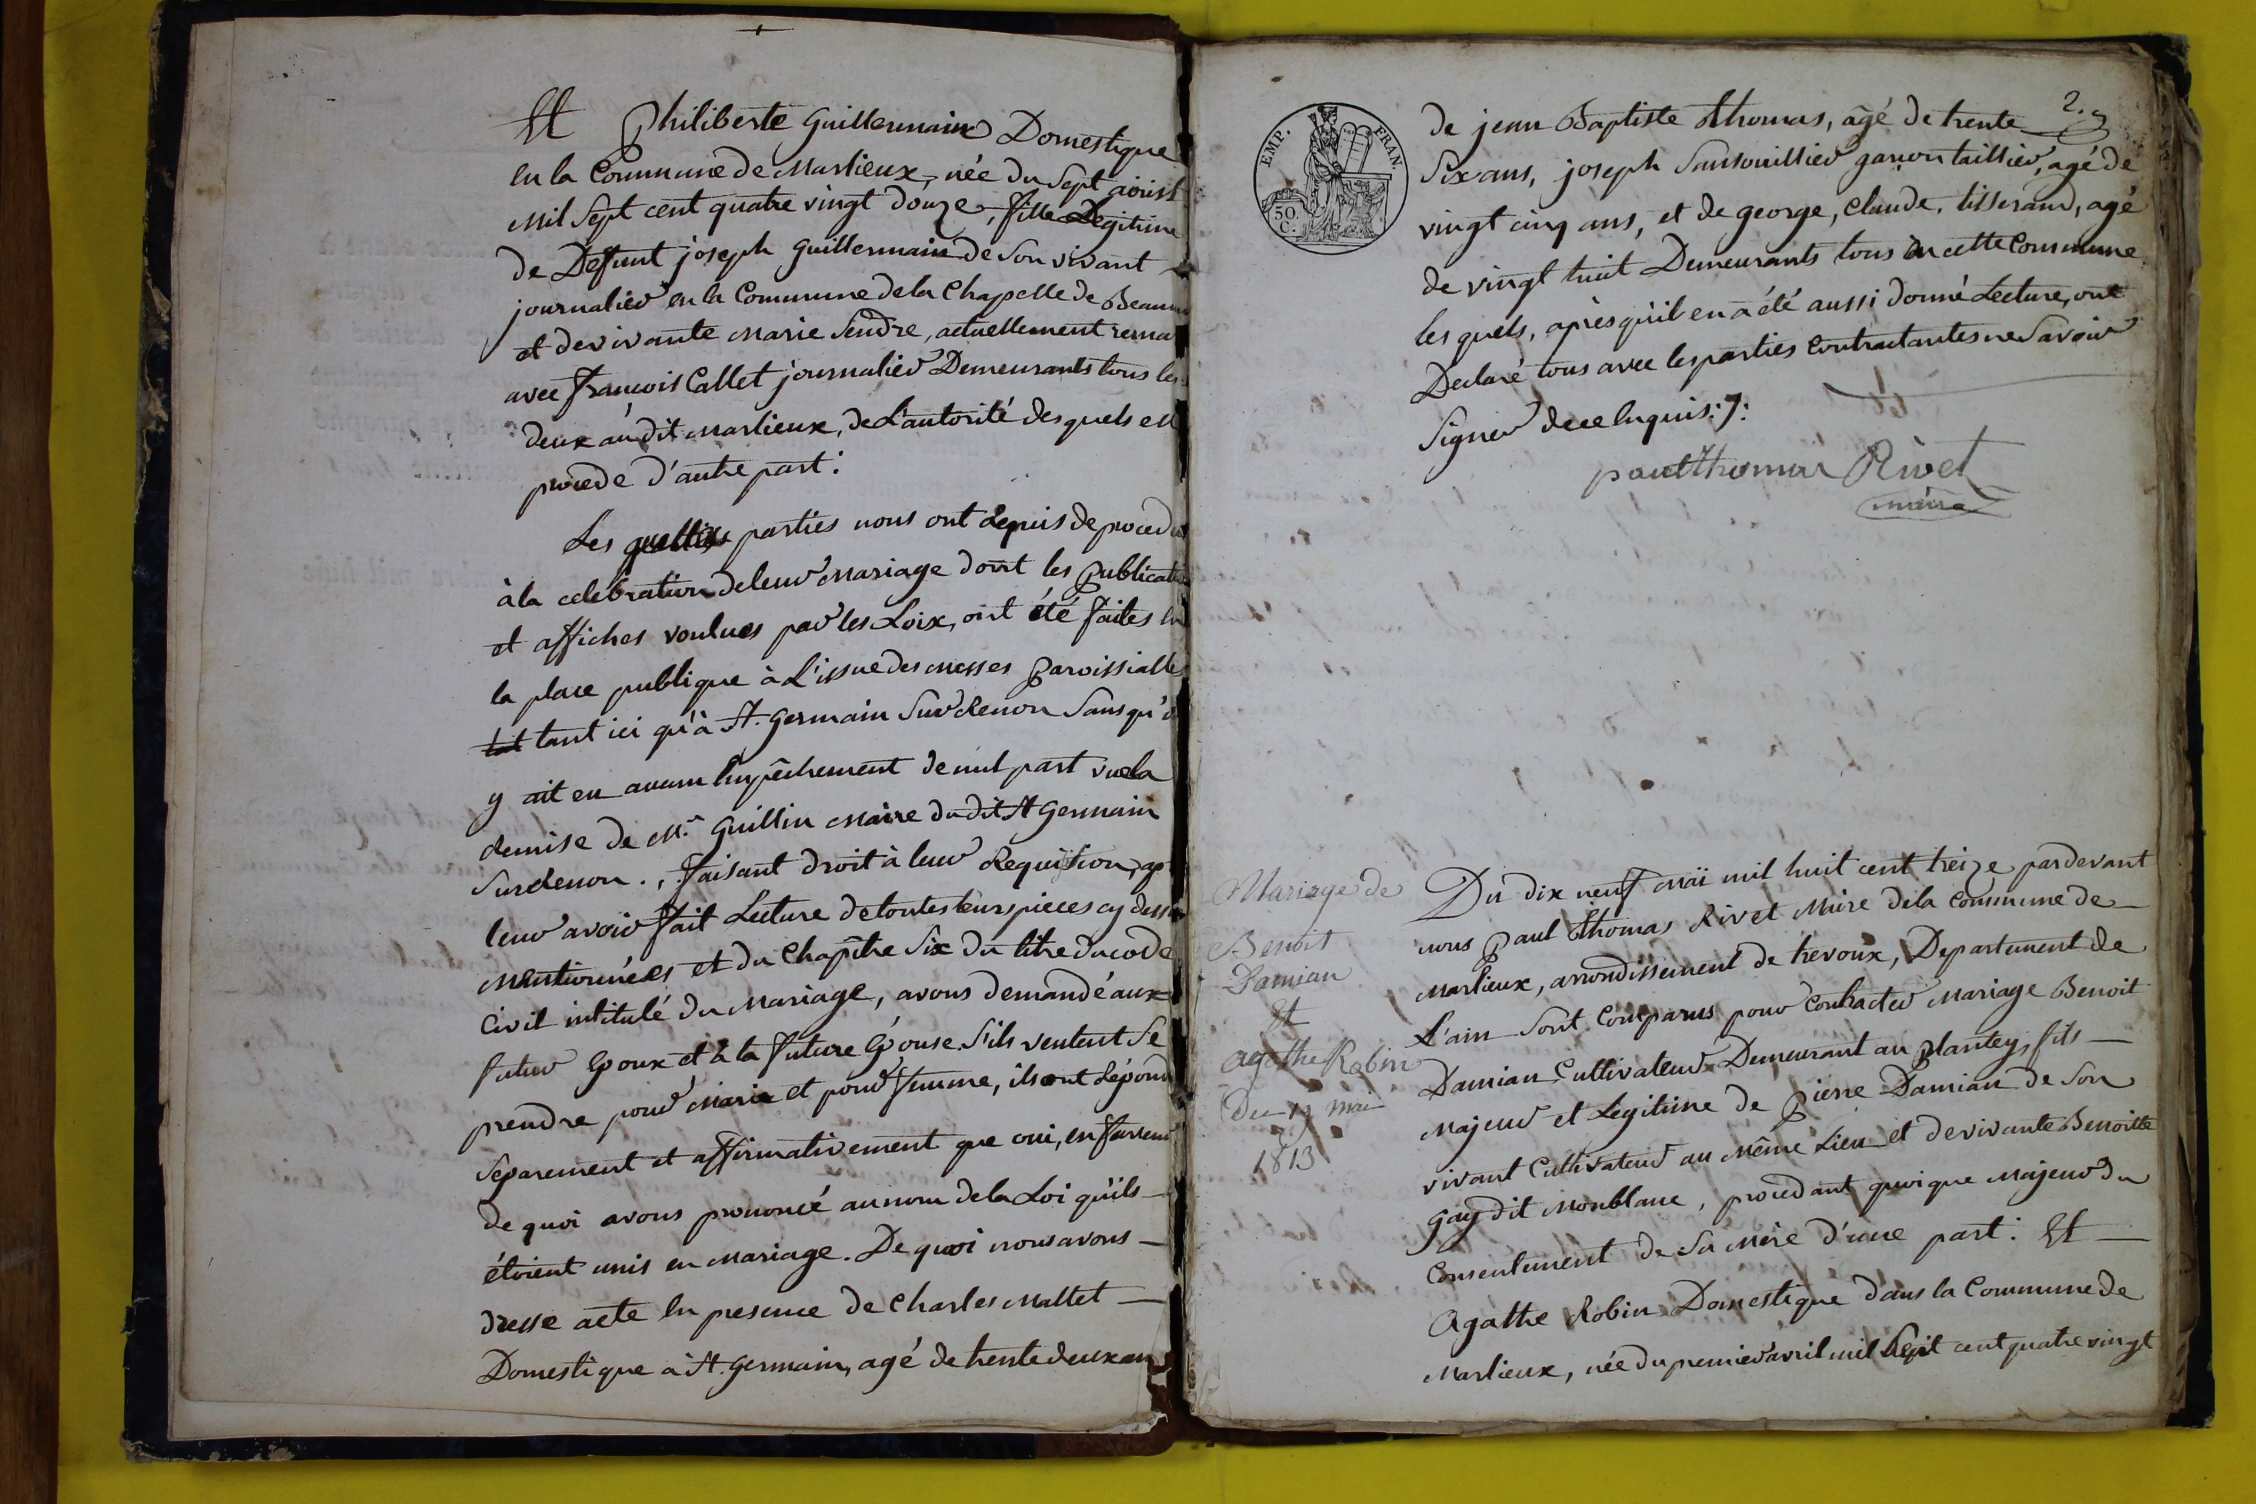 Et Philiberte Guillermain Domestique
en la Commune de Marlieux, née du Sept aoust
Mil Sept cent quatre vingt douze, fille Legitime
de Defunt joseph Guillermain de Son vivant
journalier en la Commune de la Chapelle de
et de vivante Marie Sendre, actuellement
avec françois Callet journalier Demeurants tous les
deux audit Marlieux, de L'autorité desquels elle
procede d'autre part:
Les quelles parties nous ont Requis de
à la celebration de leur Mariage dont les
et affiches voulues par les Loix, ont été faites en
la place publique à L'issue des Messes Paroissialle
tant tant ici qu'à St. Germain Sur Renon Sans qu'il
y ait eu aucun Empêchement de nul part vu la
Remise de Mr. Guillin Maire dudit St Germain
Sur Renon., Faisant droit à leur Requisition,
leur avoir fait Lecture de toutes leurs pieces cy
Mentionnées et du Chapitre Six du titre du code
Civil intitulé du Mariage, avons demandé aux
futur Epoux et à la future Epouse S'ils veulent Se
prendre pour Marie et pour femme, ils ont Répondu
Separement et affirmativement que oui, en
de quoi avons prononcé au nom de la Loi qu'ils
étoient unis en Mariage. De quoi nous avons
dressé acte En presence de Charles Mallet
Domestique à St. Germain, agé de trente deux ans
2.
EMP. FRAN.
50 C.
de jean Baptiste Thomas, âgé de trente
Six ans, joseph Sansouillier garçon taillier, agé de
vingt cinq ans, et de george, Claude, tisserand, agé
de vingt huit Demeurants tous en cette Commune
les quels, après qu'il en a été aussi donné Lecture, ont
Declaré tous avec les parties Contractantes ne Savoir
Signer de ce Enquis:
paul thomas Rivet
maire
Mariage de
Benoit
Damian
Et
agathe Robin
Du 19 mai
1813
Du dix neuf Mai mil huit cent treize pardevant
nous Paul Thomas Rivet Maire dela Commune de
Marlieux, arrondissement de trevoux, Departement de
L'ain Sont Comparus pour Contracter Mariage Benoit
Damian Cultivateur Demeurant au plantey, fils
Majeur et Legitime de Pierre Damian de Son
vivant Cultivateur au Même Lieu et de vivante Benoitte
Gay dit Monblanc, procedant quoique Majeur du
Consentement de Sa Mère d'une part: Et
Agathe Robin Domestique dans la Commune de
Marlieux, née du premier avril mil Sept cent quatre vingt